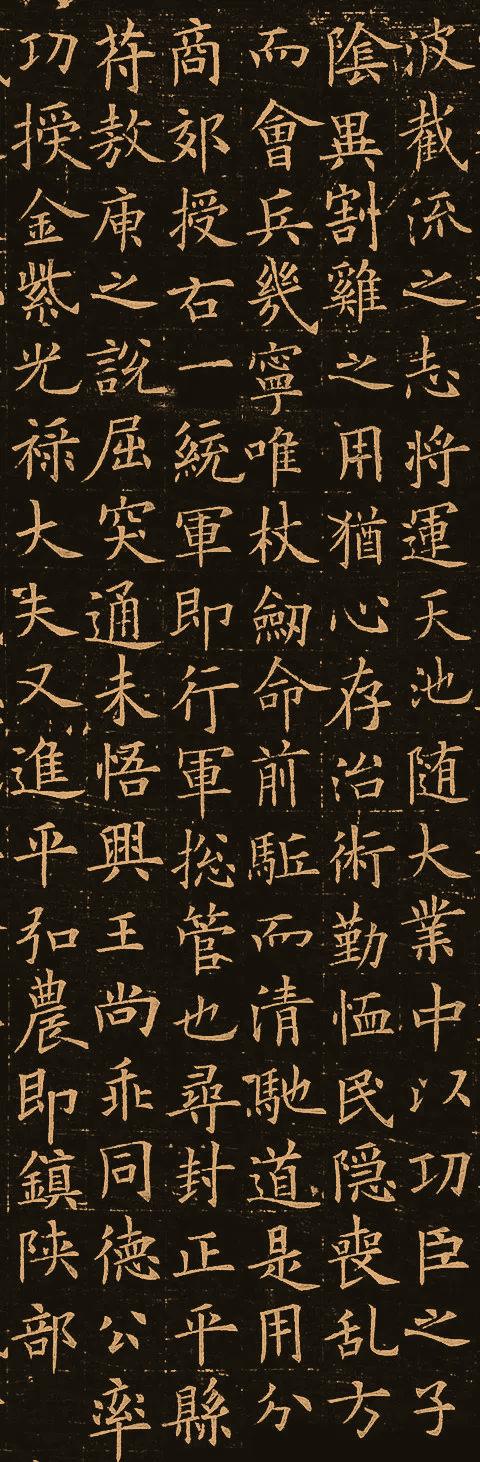 波截流之志将運天池随大業中以功臣之子
陰異割雞之用猶心存治術勤恤民隐喪乱方
而會兵幾寧唯杖劒命前駈而清馳道是用分
商郊授右一統軍即行軍揔管也尋封正平縣
苻敖庾之說屈突通未悟興王尚乖同德公率
功授金紫光禄大夫又進平弘農即鎮陕部